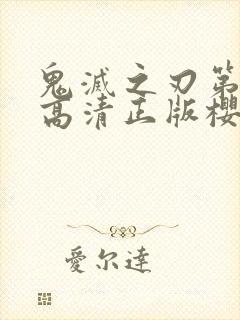 鬼滅之刃第
高清正版櫻
愛尔達